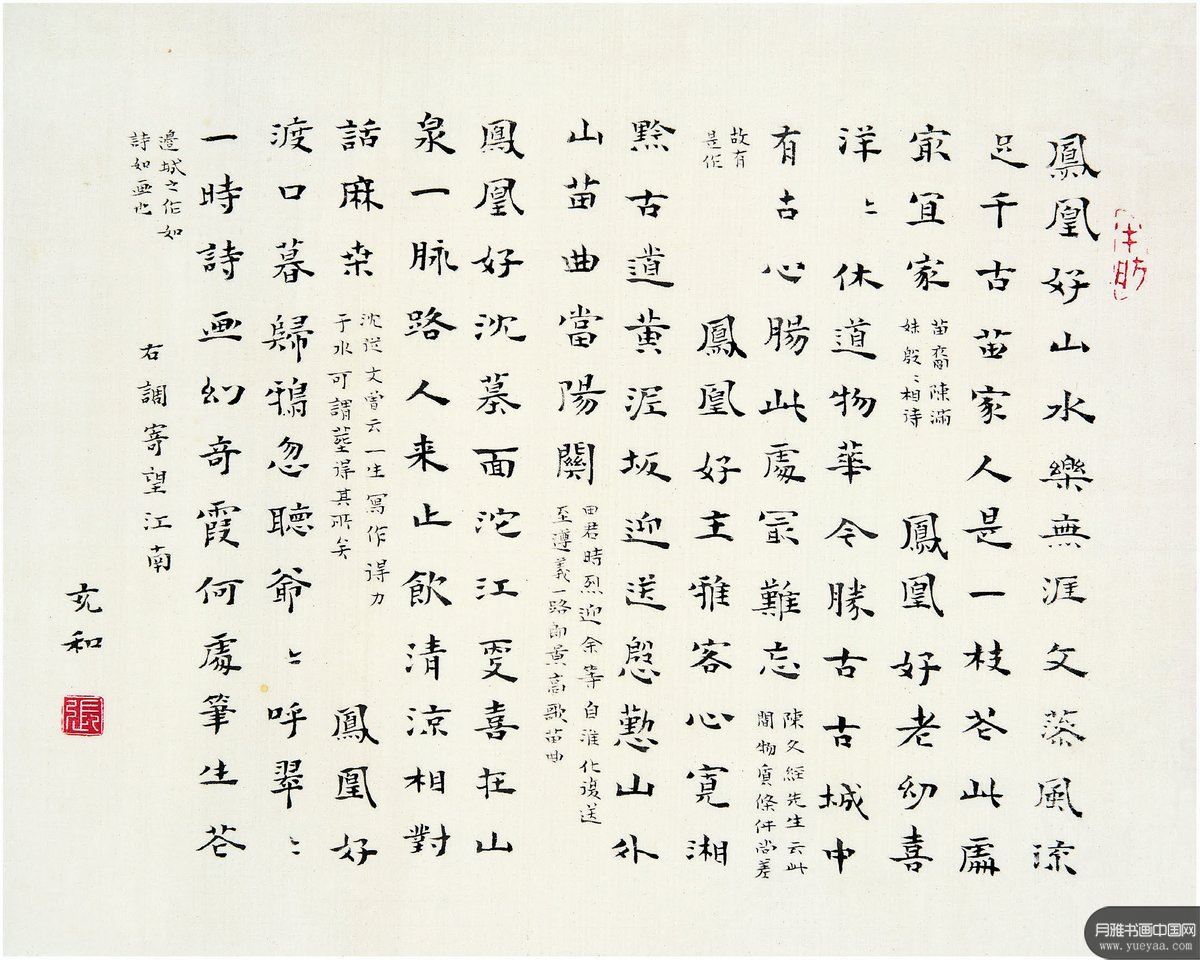 鳳凰好山水樂無涯文藻風流
足千古苗家人是一枝花此處
冣宜家
苗裔陳滿
妹殷〻相待
鳳凰好老幼喜
洋〻休道物華今勝古古城中
有古心腸此處冣難忘
陳久經先生云此
間物質條件尚差
故有
是作
鳳凰好主雅客心寬湘
黔古道黃泥坂迎送慇懃山外
山苗曲當陽關
田君時烈迎余等自淮化復送
至遵義一路高歌苗曲
鳳凰好沈墓面沱江雯喜在山
泉一脉路人来止飲清涼相對
話麻桒
沈從文曾云一生寫作得力
于水可謂塟得其所矣
鳳凰好
渡口暮歸鴉忽聽爺〻呼翠〻
一時詩画幻奇霞何處筆生花
邊城之作如
詩如画也
右調寄望江南
充和
張
月雅书画中国网
www.yueyaa.com